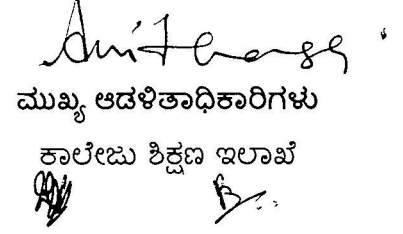 ಮುಖ್ಯ ಆಡಳಿತಾಧಿಕಾರಿಗಳು
ಕಾಲೇಜು ಶಿಕ್ಷಣ ಇಲಾಖೆ